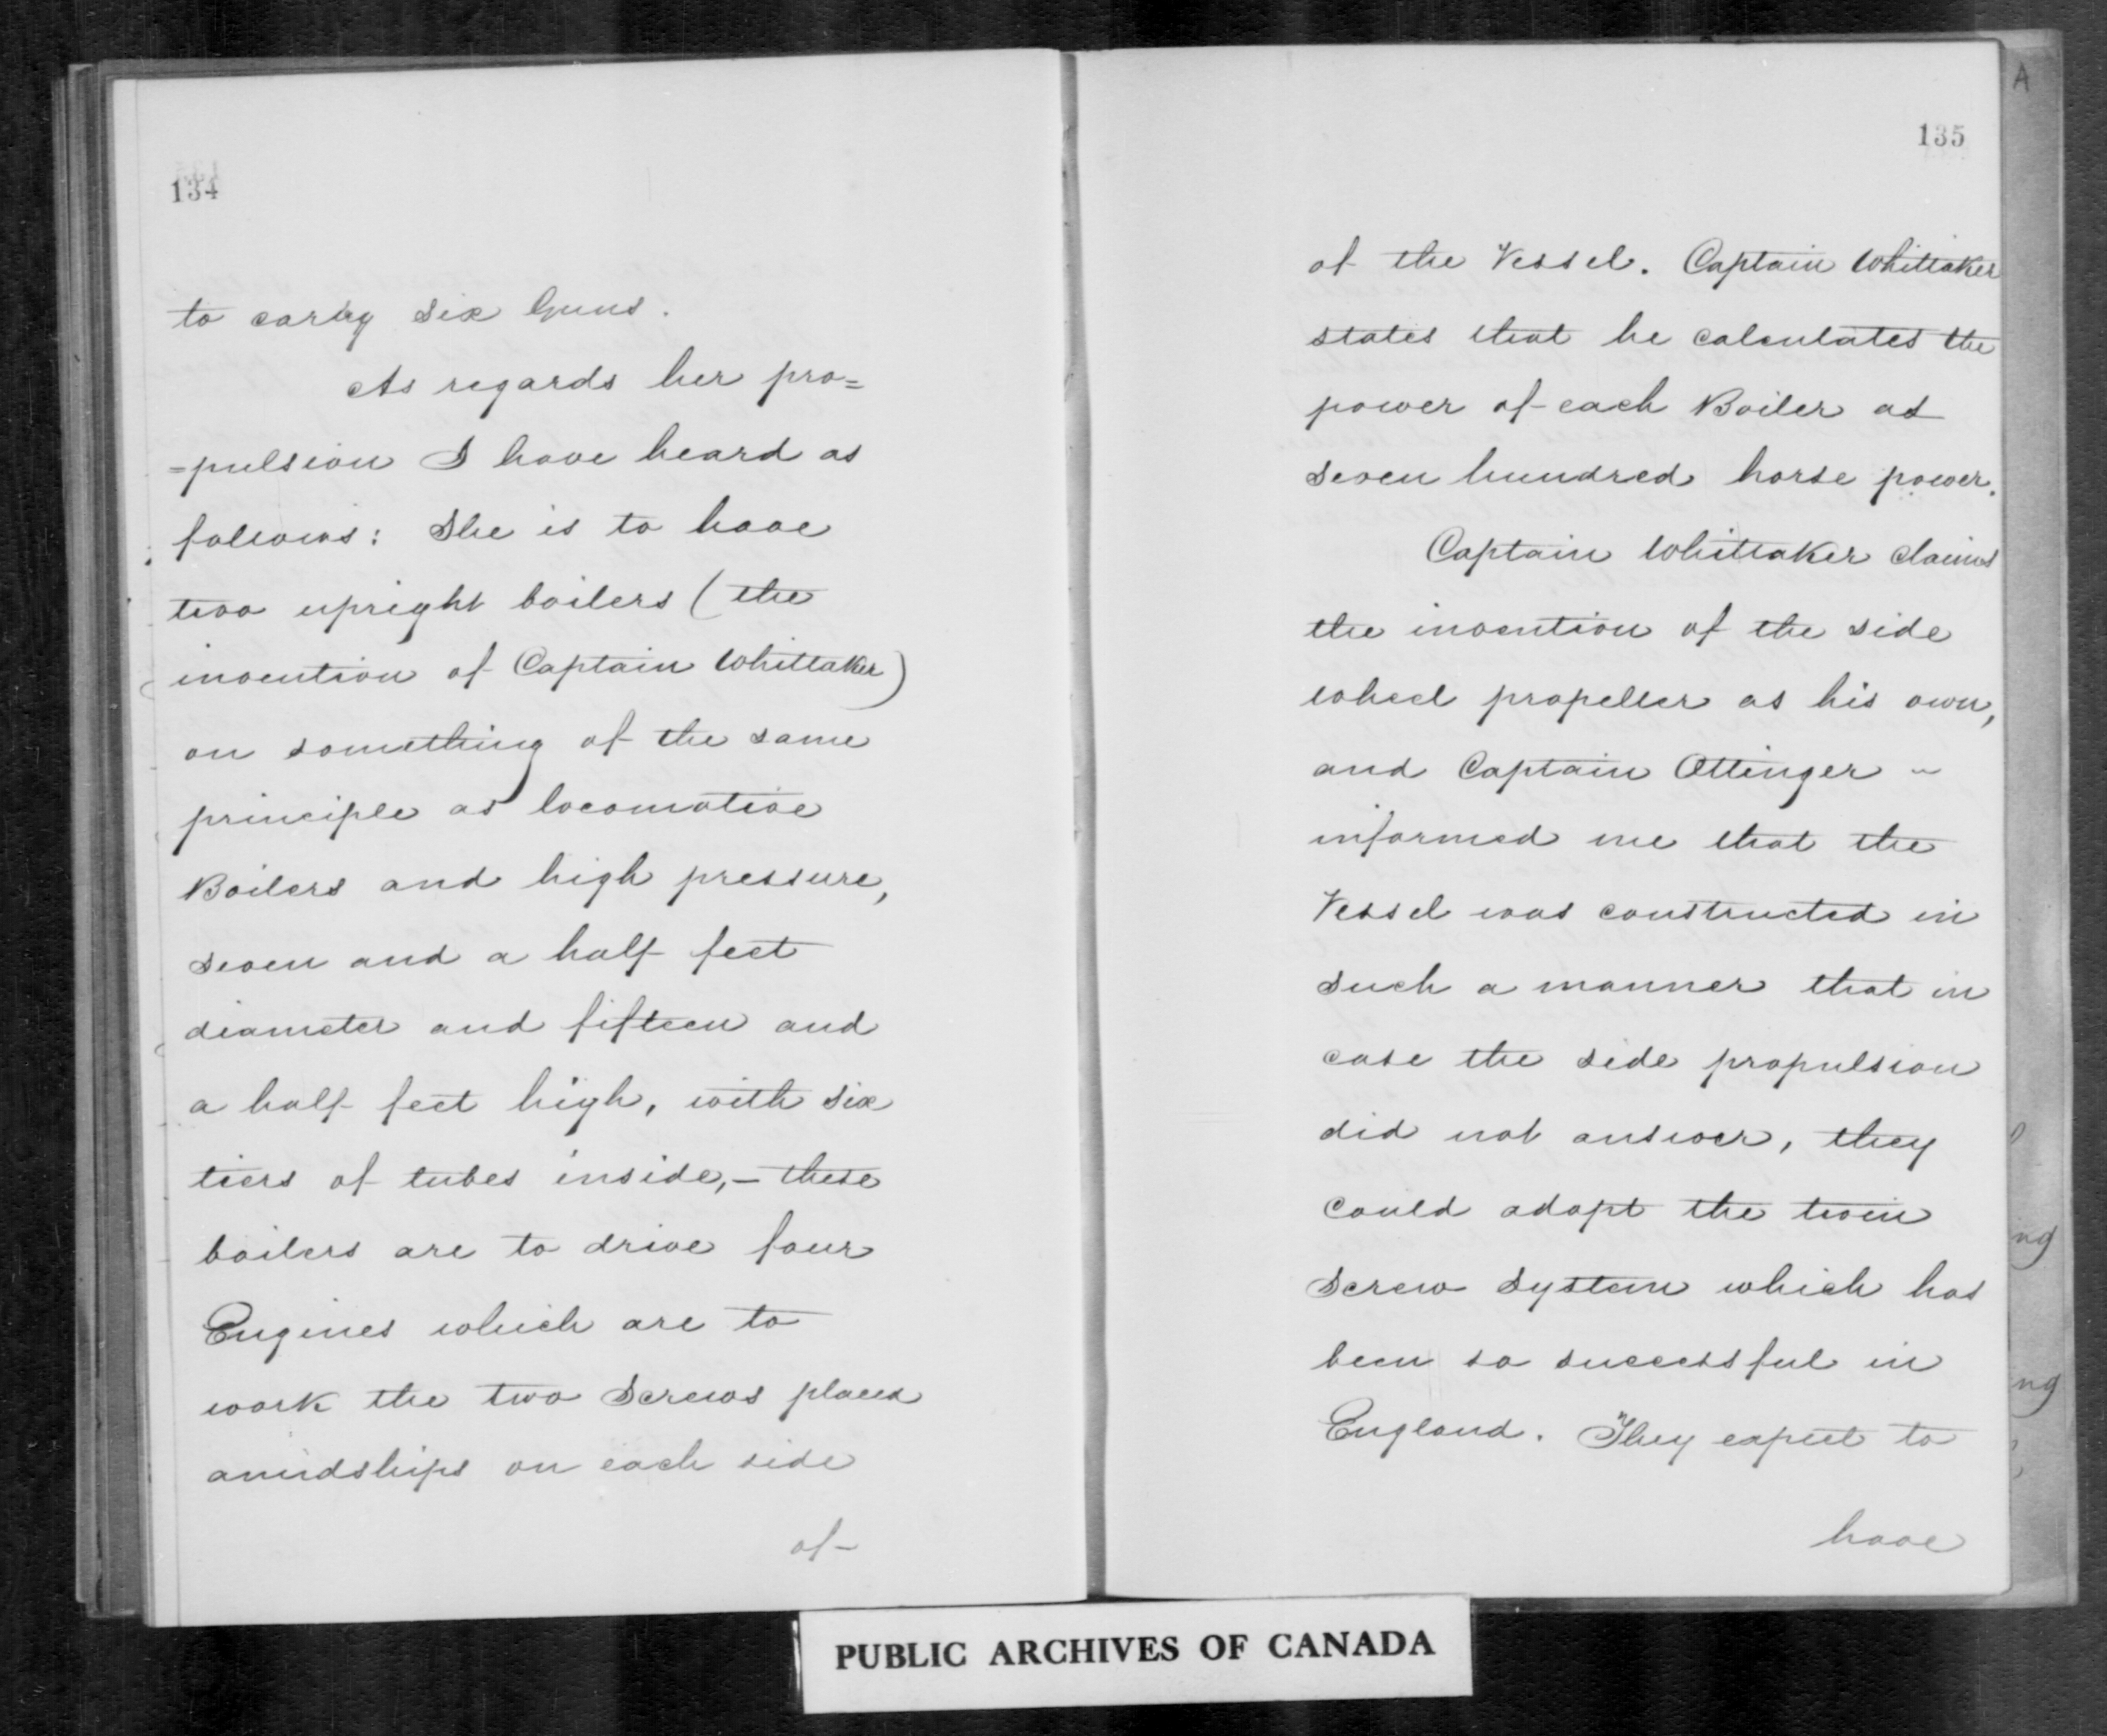 134
to carry six Guns.
As regards her pro=
=pulsion I have heard as
follows: She is to have
two upright boilers (the
invention of Captain Whittaker)
on something of the same
principle as locomotive
Boilers and high pressure,
seven and a half feet
diameter and fifteen and
a half feet high, with six
tiers of tubes inside,— these
boilers are to drive four
Engines which are to
work the two Screws placed
amidships on each side
of
135
of the Vessel. Captain Whittaker
states that he calculates the
power of each Boiler at
seven hundred horse power.
Captain Whittaker claims
the invention of the side
wheel propeller as his own,
and Captain Ottinger
informed me that the
Vessel was constructed in
such a manner that in
case the side propulsion
did not answer, they
could adopt the twin
Screw System which has
been so successful in
England. They expect to
have
A
ng
ng
PUBLIC ARCHIVES OF CANADA